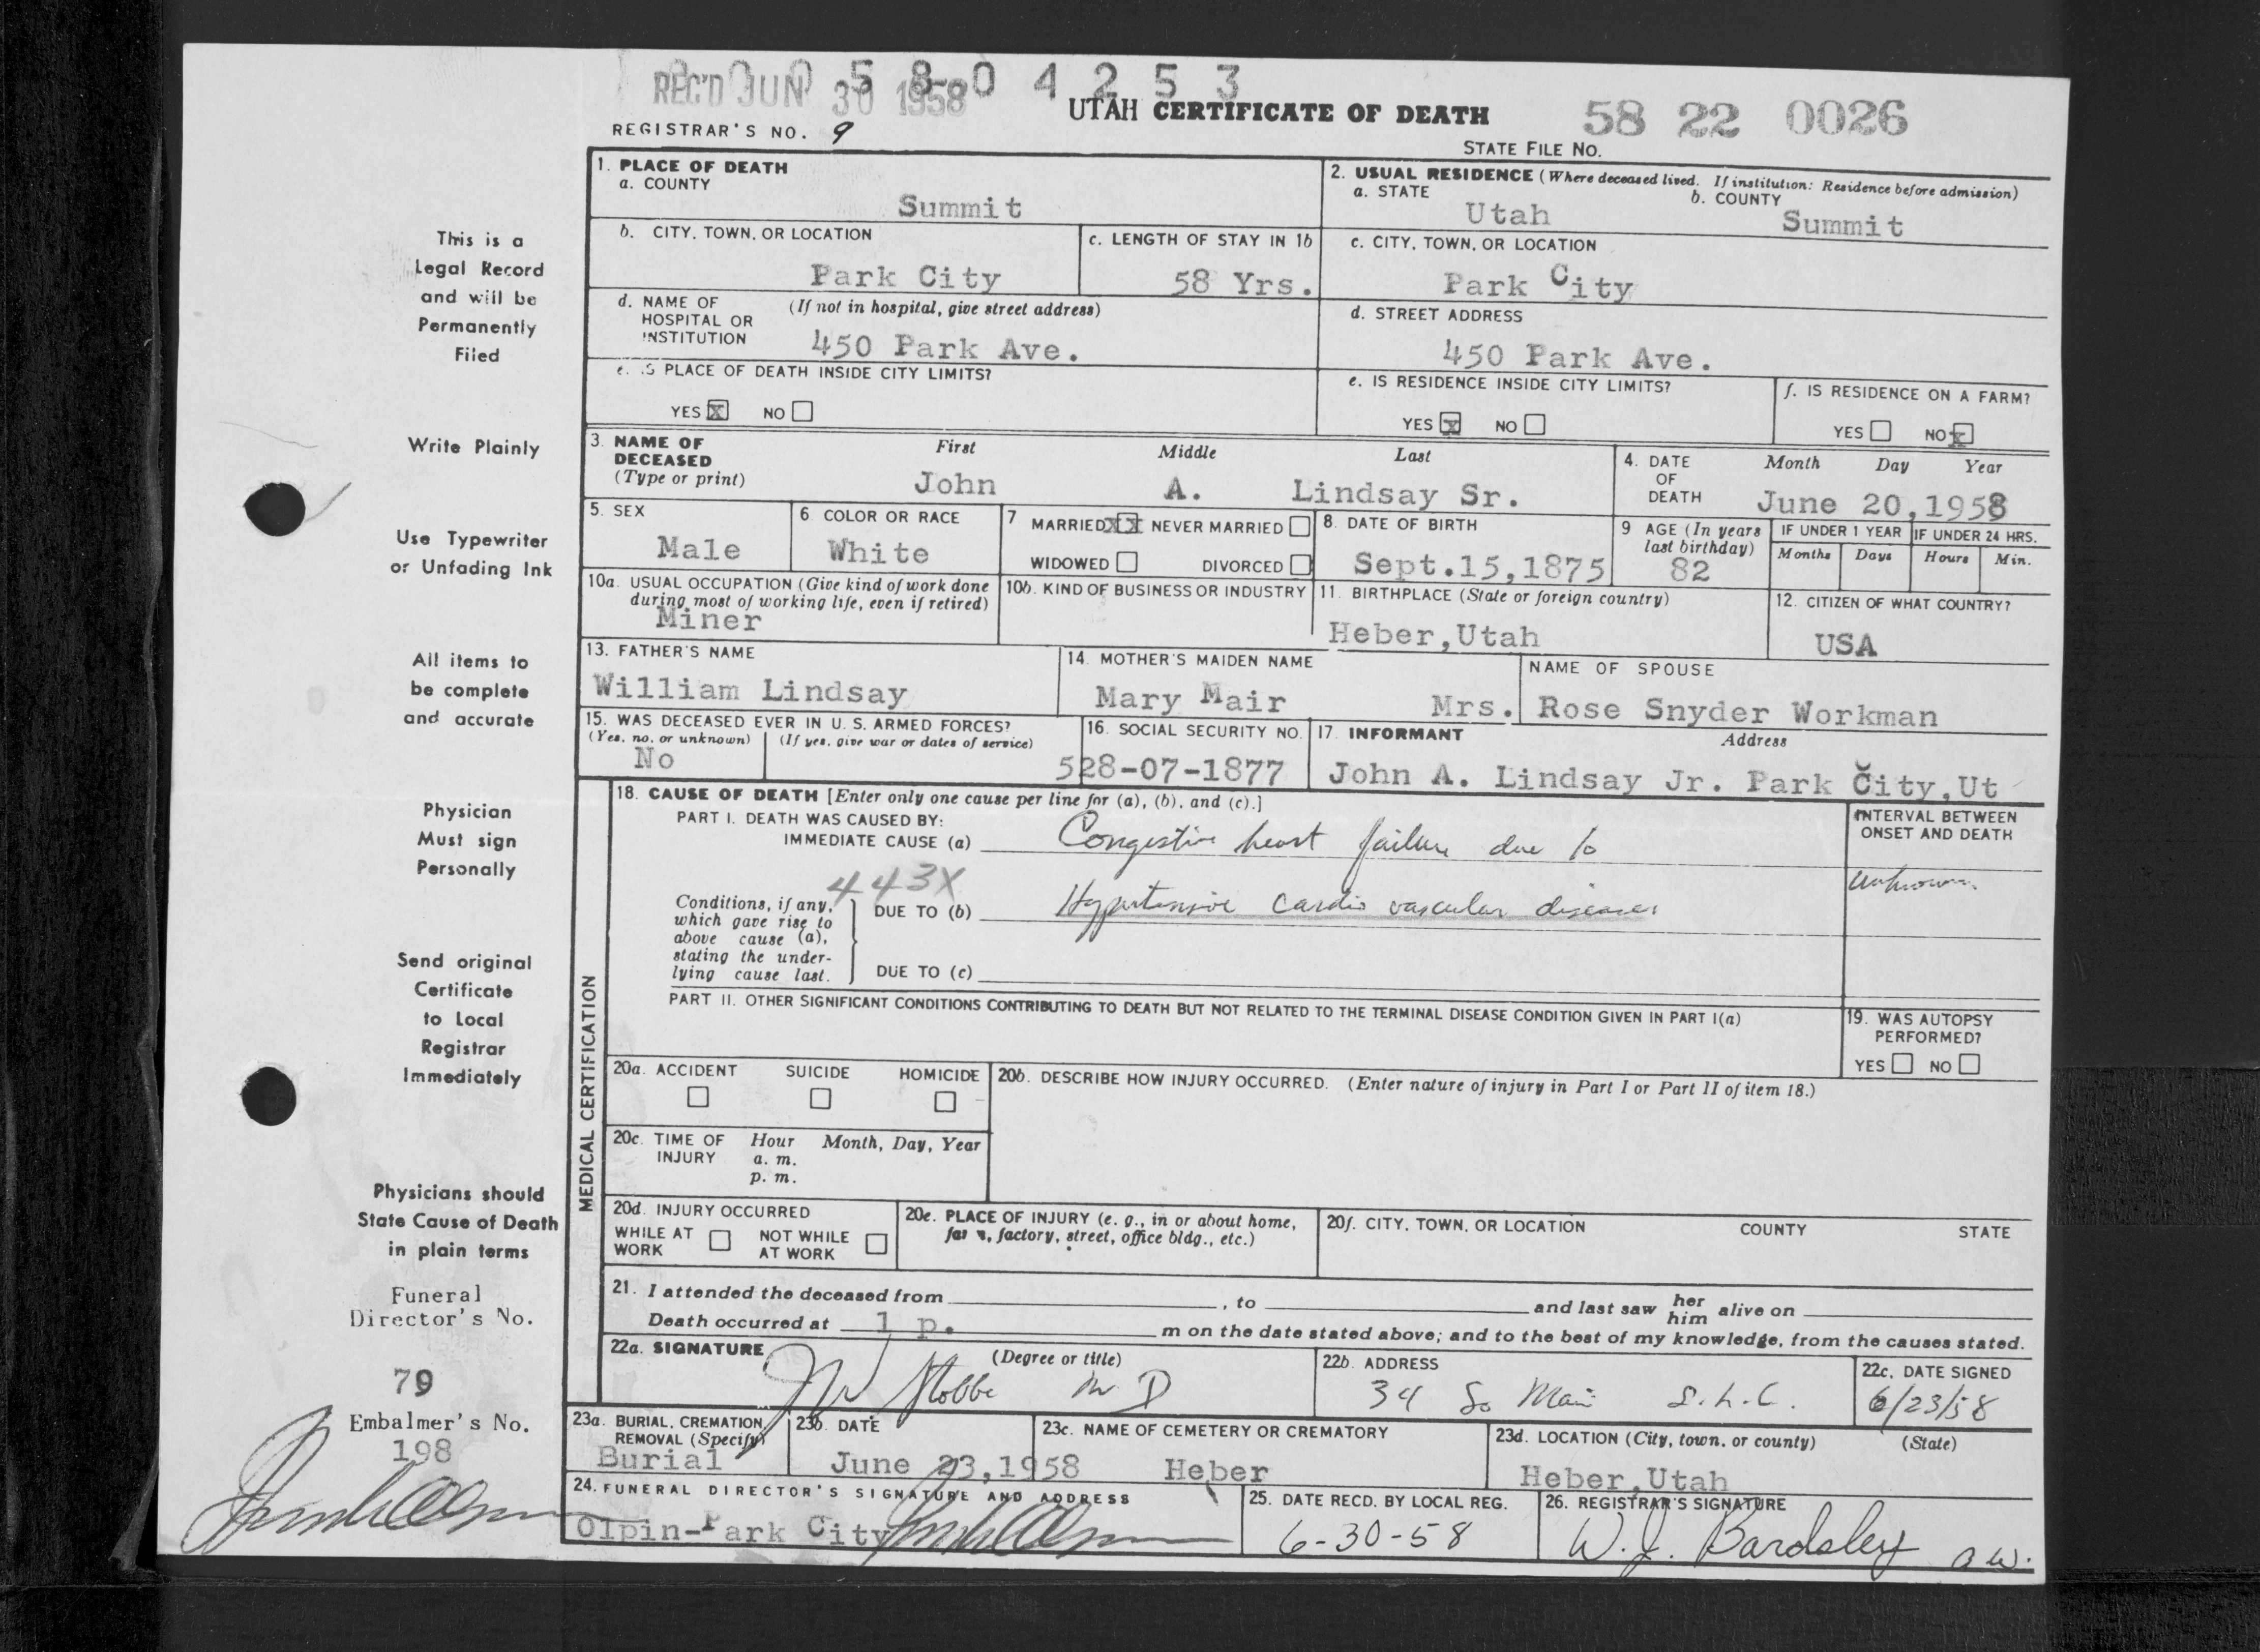 REC'D JUN 30 1958
5 8 0 4 2 5 3
UTAH CERTIFICATE OF DEATH
58 22 0026
REGISTRAR'S NO. 9
STATE FILE NO.
This is a
Legal Record
and will be
Permanently
Filed
Write Plainly
Use Typewriter
or Unfading Ink
All items to
be complete
and accurate
Physician
Must sign
Personally
Send original
Certificate
to Local
Registrar
Immediately
Physicians should
State Cause of Death
in plain terms
Funeral
Director's No.
79
Embalmer's No.
198
1. PLACE OF DEATH
a. COUNTY
Summit
2. USUAL RESIDENCE (Where deceased lived. If institution: Residence before admission)
a. STATE Utah b. COUNTY Summit
b. CITY, TOWN, OR LOCATION
Park City
c. LENGTH OF STAY IN 1b
58 Yrs.
c. CITY, TOWN, OR LOCATION
Park City
d. NAME OF HOSPITAL OR INSTITUTION (If not in hospital, give street address)
450 Park Ave.
d. STREET ADDRESS
450 Park Ave.
e. IS PLACE OF DEATH INSIDE CITY LIMITS?
YES X NO
e. IS RESIDENCE INSIDE CITY LIMITS?
YES X NO
f. IS RESIDENCE ON A FARM?
YES NO X
3. NAME OF DECEASED (Type or print)
First Middle Last
John A. Lindsay Sr.
4. DATE OF DEATH
Month Day Year
June 20,1958
5. SEX
Male
6 COLOR OR RACE
White
7 MARRIED XX NEVER MARRIED
WIDOWED DIVORCED
8. DATE OF BIRTH
Sept.15,1875
9 AGE (In years last birthday)
82
IF UNDER 1 YEAR
Months Days
IF UNDER 24 HRS.
Hours Min.
10a. USUAL OCCUPATION (Give kind of work done
during most of working life, even if retired)
Miner
10b. KIND OF BUSINESS OR INDUSTRY
11. BIRTHPLACE (State or foreign country)
Heber,Utah
12. CITIZEN OF WHAT COUNTRY?
USA
13. FATHER'S NAME
William Lindsay
14. MOTHER'S MAIDEN NAME
Mary Mair
NAME OF SPOUSE
Mrs. Rose Snyder Workman
15. WAS DECEASED EVER IN U. S. ARMED FORCES?
(Yes, no, or unknown) (If yes, give war or dates of service)
No
16. SOCIAL SECURITY NO.
528-07-1877
17. INFORMANT Address
John A. Lindsay Jr. Park City,Ut
MEDICAL CERTIFICATION
18. CAUSE OF DEATH [Enter only one cause per line for (a), (b), and (c).]
PART I. DEATH WAS CAUSED BY:
IMMEDIATE CAUSE (a) Congestive heart failure due to
INTERVAL BETWEEN
ONSET AND DEATH
unknown
443X
Conditions, if any,
which gave rise to
above cause (a),
stating the under-
lying cause last.
DUE TO (b) Hypertensive cardio vascular disease
DUE TO (c)
PART II. OTHER SIGNIFICANT CONDITIONS CONTRIBUTING TO DEATH BUT NOT RELATED TO THE TERMINAL DISEASE CONDITION GIVEN IN PART I(a)
19. WAS AUTOPSY
PERFORMED?
YES NO
20a. ACCIDENT SUICIDE HOMICIDE
20b. DESCRIBE HOW INJURY OCCURRED. (Enter nature of injury in Part I or Part II of item 18.)
20c. TIME OF INJURY
Hour Month, Day, Year
a. m.
p. m.
20d. INJURY OCCURRED
WHILE AT WORK NOT WHILE AT WORK
20e. PLACE OF INJURY (e. g., in or about home,
farm, factory, street, office bldg., etc.)
20f. CITY, TOWN, OR LOCATION COUNTY STATE
21. I attended the deceased from , to and last saw her him alive on
Death occurred at 1 p. m on the date stated above; and to the best of my knowledge, from the causes stated.
22a. SIGNATURE (Degree or title)
M D
22b. ADDRESS
34 So Main S.L.C.
22c. DATE SIGNED
6/23/58
23a. BURIAL, CREMATION
REMOVAL (Specify)
Burial
23b. DATE
June 23,1958
23c. NAME OF CEMETERY OR CREMATORY
Heber
23d. LOCATION (City, town, or county) (State)
Heber,Utah
24. FUNERAL DIRECTOR'S SIGNATURE AND ADDRESS
Olpin-Park City
25. DATE RECD. BY LOCAL REG.
6-30-58
26. REGISTRAR'S SIGNATURE
W. J. Bardsley a w.